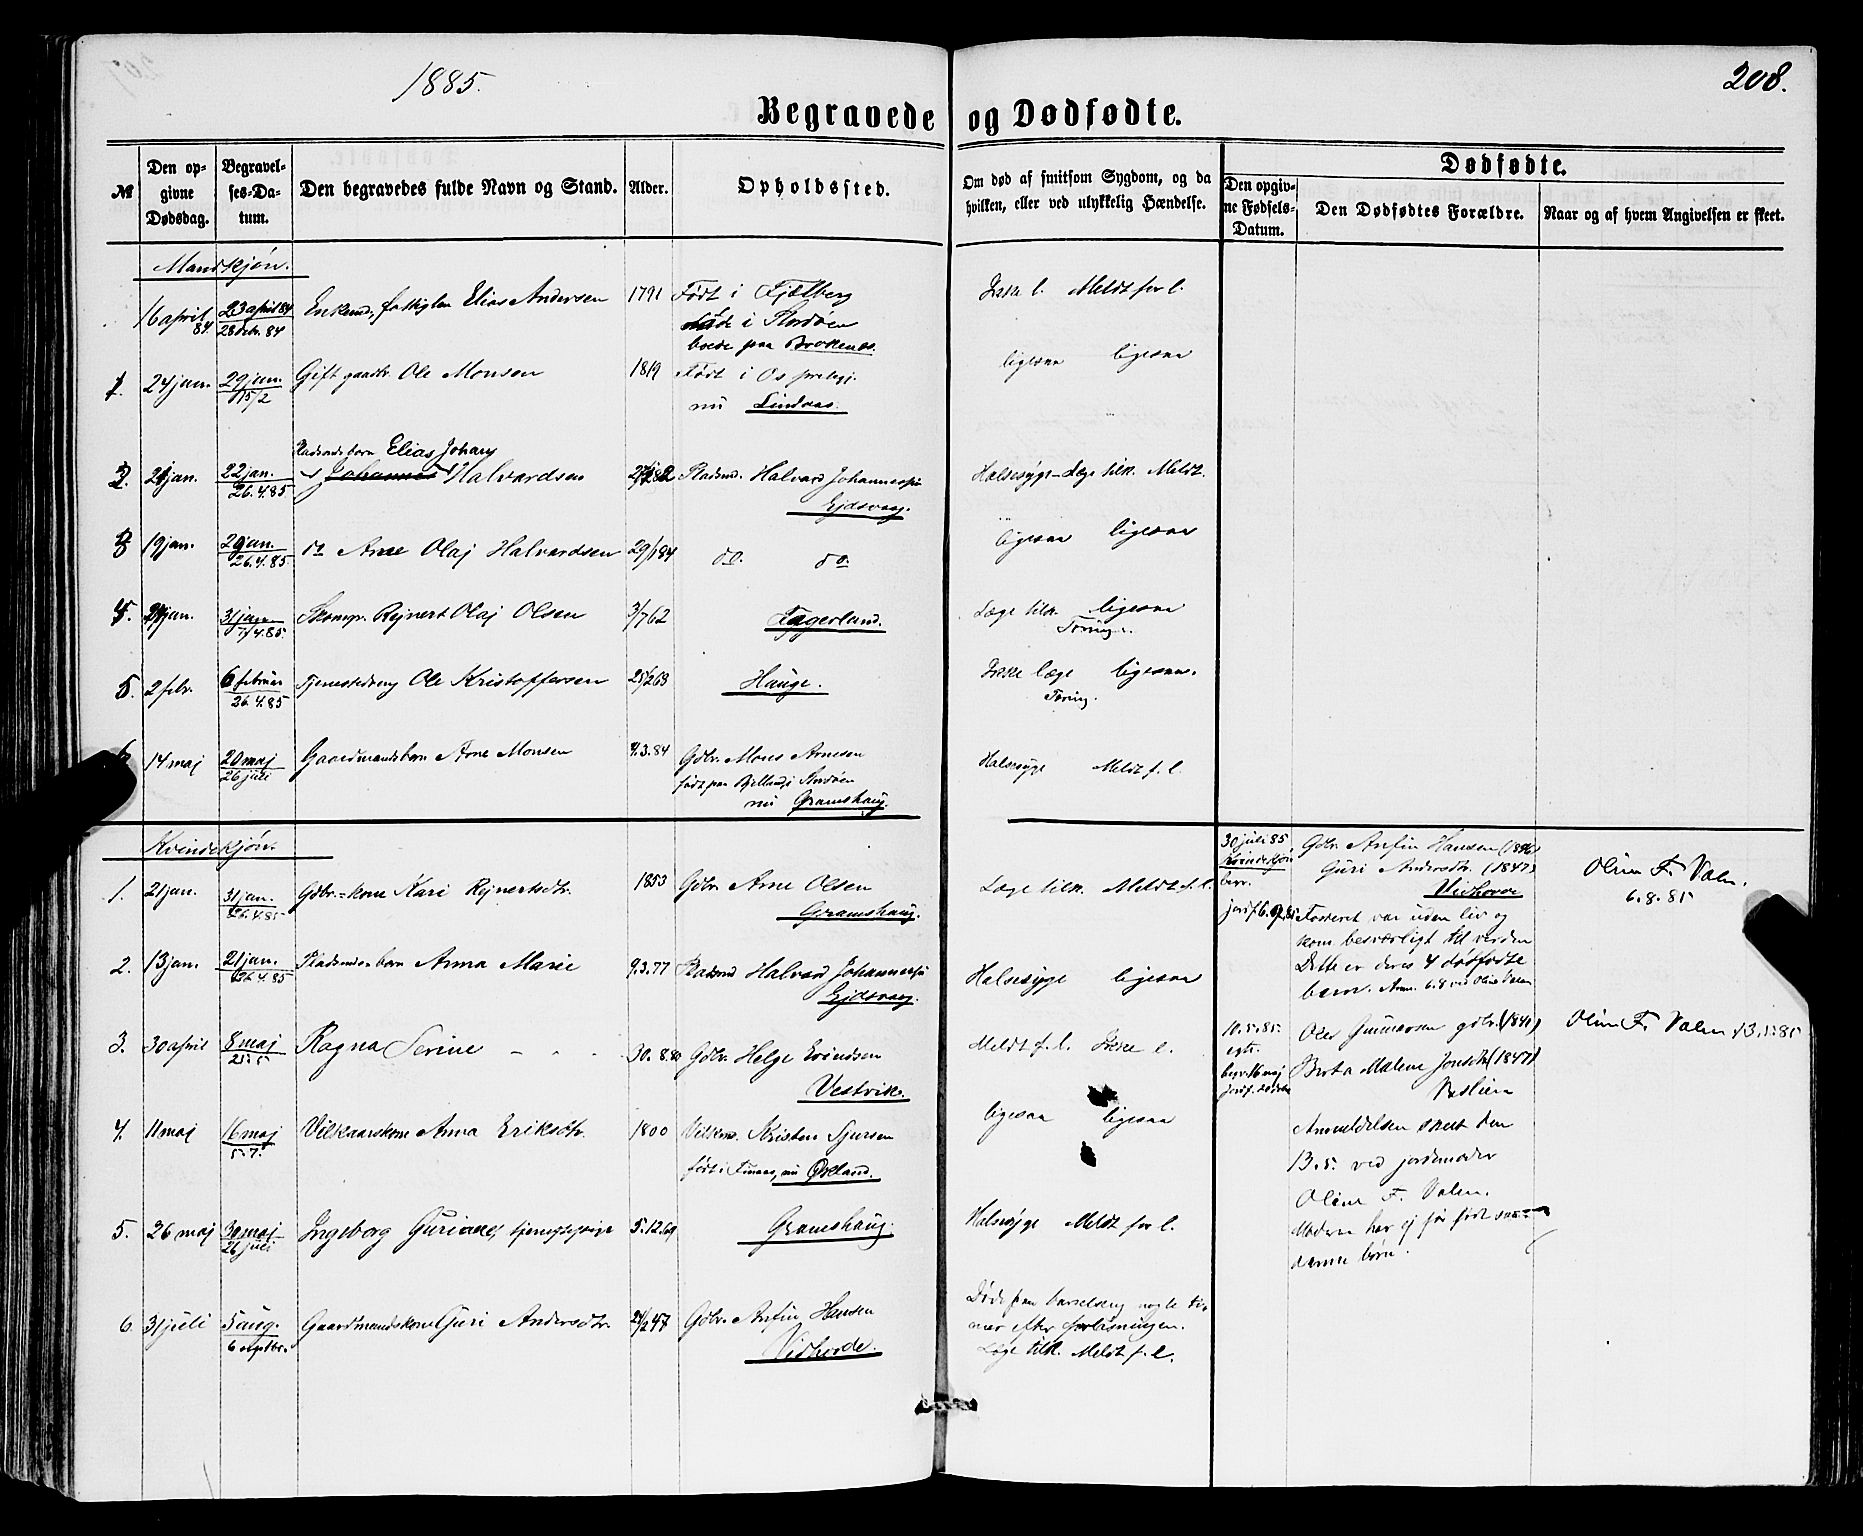 1885.
208.
Begravede og Dødfødte.
№
Den opgivne Dødsdag.
Begravelses-Datum.
Den begravedes fulde Navn og Stand.
Alder.
Opholdssted.
Om død af smitsom Sygdom, og da hvilken, eller ved ulykkelig Hændelse.
Dødfødte.
Den opgivne Fødsels-Datum.
Den Dødfødtes Forældre.
Naar og af hvem Angivelsen er skeet.
Mandkjøn.
16 april 84 23 april 84 Elias Andersen 1791 Født i Fjelberg Ikke l. Meldt for l.
28 84
døde i Stordøen
boede paa Brokenes.
1. 24 jan. 29 jan. Gift gaardbr. Ole Monsen 1819 Født i Os prstgj. ligesaa ligesaa
15/2
nu Lindaas.
Pladsmdsbarn Elias Johan
2. 21 jan. 22 jan. Johannes Halvardsen Pladsmd. Halvard Johannes Halssyge - Læge tilk. Meldt.
26.4.85
Ejdsvaag.
3 19 jan. 29 jan. Arne Olaj Halvardsen 29/1 84 do. do. ligesaa ligesaa
26.4.85.
4. jan. 31 jan. Rejnert Olaj Olsen 3/7 62 Fagerland. Læge tilk. ligesaa
7/4.85.
Tæring.
5. 2 febr. 6 februar Tjenestedreng Ole Kristoffersen 25/2 63 Hauge. Ikke læge ligesaa.
26.4.85
Tæring.
14 maj 20 maj Gaardmandsbarn Arne Monsen 9.3.84 Gdbr. Mons Arnesen Halssyge Meldt f. l.
26 juli
født paa Bjelland i Stordøen
nu Gramshaug.
Kvindekjøn.
1. 21 jan. 31 jan. Gdbr.-kone Kari Rejnertsdtr. 1853 Gdbr. Arne Olsen Læge tilk. Meldt f. l.
26.4.85.
Gramshaug.
2. 13 jan. 21 jan. Pladsmdsbarn Anna Marie 9.3.77 Pladsmd Halvard Johannes Halssyge ligesaa
26.4.85
Ejdsvaag.
3. 30 april 8 maj Ragna Serine 30.8. Gdbr. Helge Erindsen Meldt f. l. Ikke l.
25.5
Vestvik.
4. 11 maj 16 maj Vilkaarskone Anna Eriksdtr. 1800 Vilkmd. Kristen Sjursen ligesaa ligesaa
5.7.
født i Finnaas, nu Økland.
5. 26 maj 30 maj Ingeborg Guriane, tjenestepige 5.12.69 Gramshaug. Halssyge Meldt for l.
26 juli
6. 31 juli 5 aug. Gaardmandskone Guri Andersdtr. 24/2 47 Gdbr. Anfin Hansen
6 septbr.
Vidhovde.
Døde paa barselseng nogle ti-
mer efter forløsningen.
Læge tilk. Meldt f. l.
30 juli 85
Kvindekjøn
begr.
jordf. 6.9.85
Gdbr. Anfin Hansen (1846)
Guri Andersdtr. (1847)
Vidhovde
Fosteret var uden liv og
kom besværligt til verden
Dette er deres 4 dødfødte
barn. Anm. 6.8 ved Oline Valen
Oline F. Valen.
6.8.85
10.5.85.
egte.
begr. 16 maj
Gunnarsen gdbr. (1841)
Berta Malene Jonsdtr. (1847)
Vaslien
Anmeldelsen skeet den
13.5. ved jordemoder
Oline F. Valen.
Moderen har ej før født saa-
danne børn.
Oline F. Valen 13.5.85